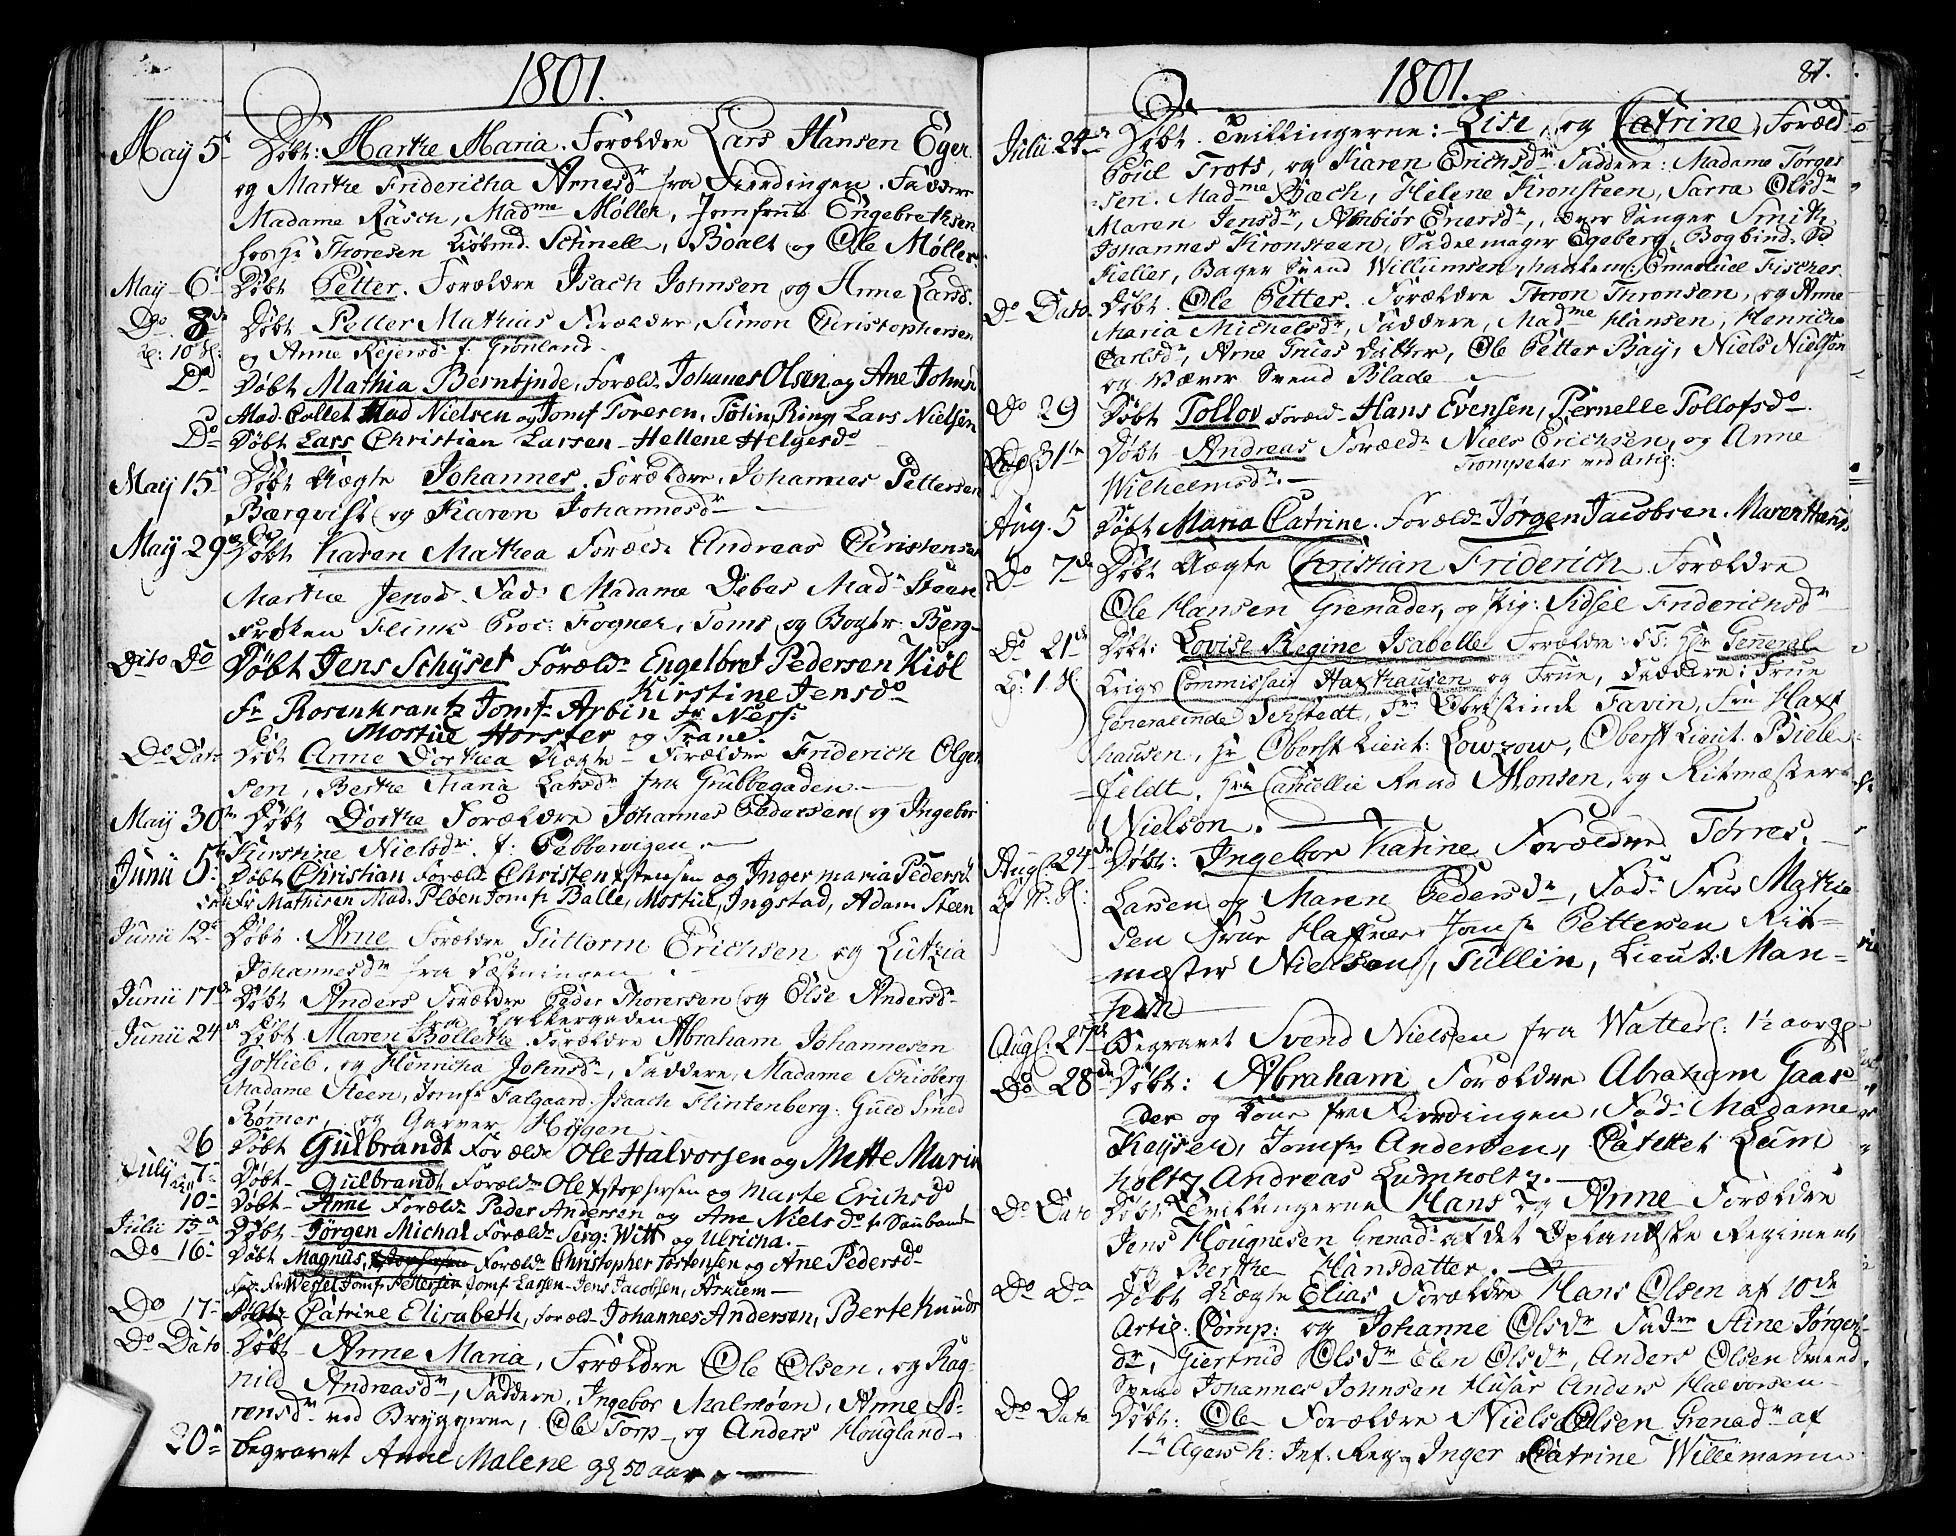 1801.
May 5te Døbt: Marthe Maria. Forældre Lars Hansen Eger
og Marthe Fridericha Arnesdr fra Fierdingen. Faddere
Madame Rasch, Madme Møller, Jomfrue Engebrethsen
hos Hr Thoresen Kiøbmd. Schnell, Boalt og Ole Møller
May 6te Døbt Petter. Forældre Isach Johnsen og Anne Larsd.
Do 8de Døbt Petter Mathias Forældre, Simon Christophersen
og Anne Rejersd f. Grønland.
Do Døbt Mathia Berntjnde, Foræld Johanes Olsen og Ane Johns
Mad. Collet Mad Nielsen og Jomf Toresen, Tolin, Ring, Lars Nielsen
Do Døbt Lars Christian Larsen - Hellene Helgersdo
May 15de Døbt Uægte Johannes. Forældre, Johannes Pettersen
Bærqvist og Karen Johannesdr
May 29de Døbt Karen Mathea Foræld. Andreas Christensen
Marthe Jensd. Fad: Madame Debes Madm Steen
Frøken Flink Proc: Fogner, Toms og Bogtr. Berg-
Dito Do Døbt Jens Schyset Foræld Engelbret Pedersen Kiøl
Kirstine Jensdo
Fr Rosenkrantz Jomf Arbin Fr Ness:
Mortue Horster og Trane.
Do Dato Døbt Anne Dorthea Uægte Forældre Friderich Olger
sen, Berthe Maria Larsdr fra Grubbegaden
May 30te Døbt Dorthe Forældre Johannes Pedersen og Ingebor
Kierstine Nielsdr. f. Pebbervigen.
Junii 5te Døbt Christian Foræld Christen Estensen og Inger maria Peders
Fr Mathisen Mad. Pløen Jomf Balle, Mortue, Ingstad, Adam Steen
Junii 12te Døbt Arne Forældre Guttorm Erichsen og Luthia
Johannesdr fra Fæstningen.
Junii 17de Døbt Anders Forældre Peder Thoresen og Else Andersd
fra Lakkergaden
Junii 24de Døbt Maren Bollethe Forældre Abraham Johannesen
Gotlieb, og Henricha Johnsdr, Faddere, Madame Schiøberg
Madame Steen, Jomf Falgaard. Isaach Flintenberg: Guld Smed
Rømer, og Garver Høyen
26 Døbt Gulbrandt Foræld Ole Halvorsen og Mette Marin
July 7 Døbt Gulbrandt Foræld Ole Estophersen og Marte Erichsdo
10 Døbt Anne Foræld Peder Andersen og Ane Nielsdo
Julii 15de Døbt Jørgen Michal Foræld Serg: Witt og Ulricha.
Do 16 Døbt Magnus, Foræld Christopher Torstensen og Ane Pedersdo
Fad. Fr Wessel Jomf. Pettersen Jomf Larsen Jens Jacobsen, Arnsen
Do 17 Døbt Catrine Elisabeth, Foræld Johannes Andersen, Berte Knuds
Do Dato Døbt Anne Maria, Forældre Ole Olsen, og Rag-
nild Andreasdr, Faddere, Ingebor Malmøen, Anne Sø-
rensdr ved Bryggerne, Ole Torp og Anders Hougland
20de begravet Anne Malene gl 50 aar
1801. 87.
Julii 24de Døbt Tvillingerne: Lise og Catrine, Foræld
Poul Trots, og Karen Erichsdr Faddere: Madame Jørgen
sen. Madme Bæch, Helene Kronsteen, Sarra Olsdr
Maren Jensdr, Anbiør Enersdr, Smith
Johannes Kronsteen, Sadelmager Egeberg, Bogbind.
Kielier, Bager Svend Willumsen, Emanuel Fischer
Do Dato Døbt Ole Petter. Forældre Thron Thronsen, og Anne
Maria Michelsdr, Faddere, Madme Hansen, Henriche
Carlsdr, Arne Trues Datter, Ole Petter Bay, Niels Nielson
og Væver Svend Blade
Do 29 Døbt Tollov Foræld Hans Evensen, Pernelle Tollofsdo
31te Døbt Andreas Foræld Niels Erichsen, og Anne
Trompeter ved Artig:
Wilhelmsdr.
Aug. 5 Døbt Maria Catrine. Foræld Jørgen Jacobsen. Maren Hans
Do 7de Døbt Uægte Christian Friderich Forældre
Ole Hansen Grenader, og Pig: Sidsel Friderichsdr
Do 21de Døbt: Lovise Regine Isabelle Forældre: Hr General
Krigs Commissair Haxthausen og Frue, Faddere: Frue
Generalinde Sehstedt, Fru Obristinde Favin, Fru Haxt
hausen, Hr Oberst Lieut: Lowzow, Oberst Lieut. Biele
feldt. Hr Cancellie Raad Monsen, og Ritmæster
Nielson.
Aug. 24de Døbt: Ingebor Karine Forældre Torres
Larsen og Maren Pedersdr, Fadr Frue Mathie
sen Frue Haffner Jomf Pettersen Rit-
mæster Nielson, Tullin, Lieut: Man-
hein
Aug. 27de Begravet Svend Nielsen fra Watterl: 1½ aar gl
Do 28de Døbt: Abraham Forældre Abraham Gaar
der og Kone fra Fierdingen, Fad: Madame
Keyser, Jomf Andersen, Catethet Lum
holtz Andreas Lumholtz.
Do Dato Døbt Tvillingerne Hans og Anne Forældre
Jens Hougnesen Grenadr af det Oplandske Regiment
og Berthe Hansdatter.
Do Do Døbt Uægte Elias Forældre Hans Olsen af 10de
Artig: Comp: og Johanne Olsdr Faddre Stine Jørgens
dr, Giertrud Olsdr Elen Olsdr, Anders Olsen Svend
Svend Johannes Johnsen Husar Anders Halvorsen
Do Dato Døbt: Ole Forældre Niels Olsen Grenadr af
1te Agersh: Inf. Reg. Inger Catrine Willemann